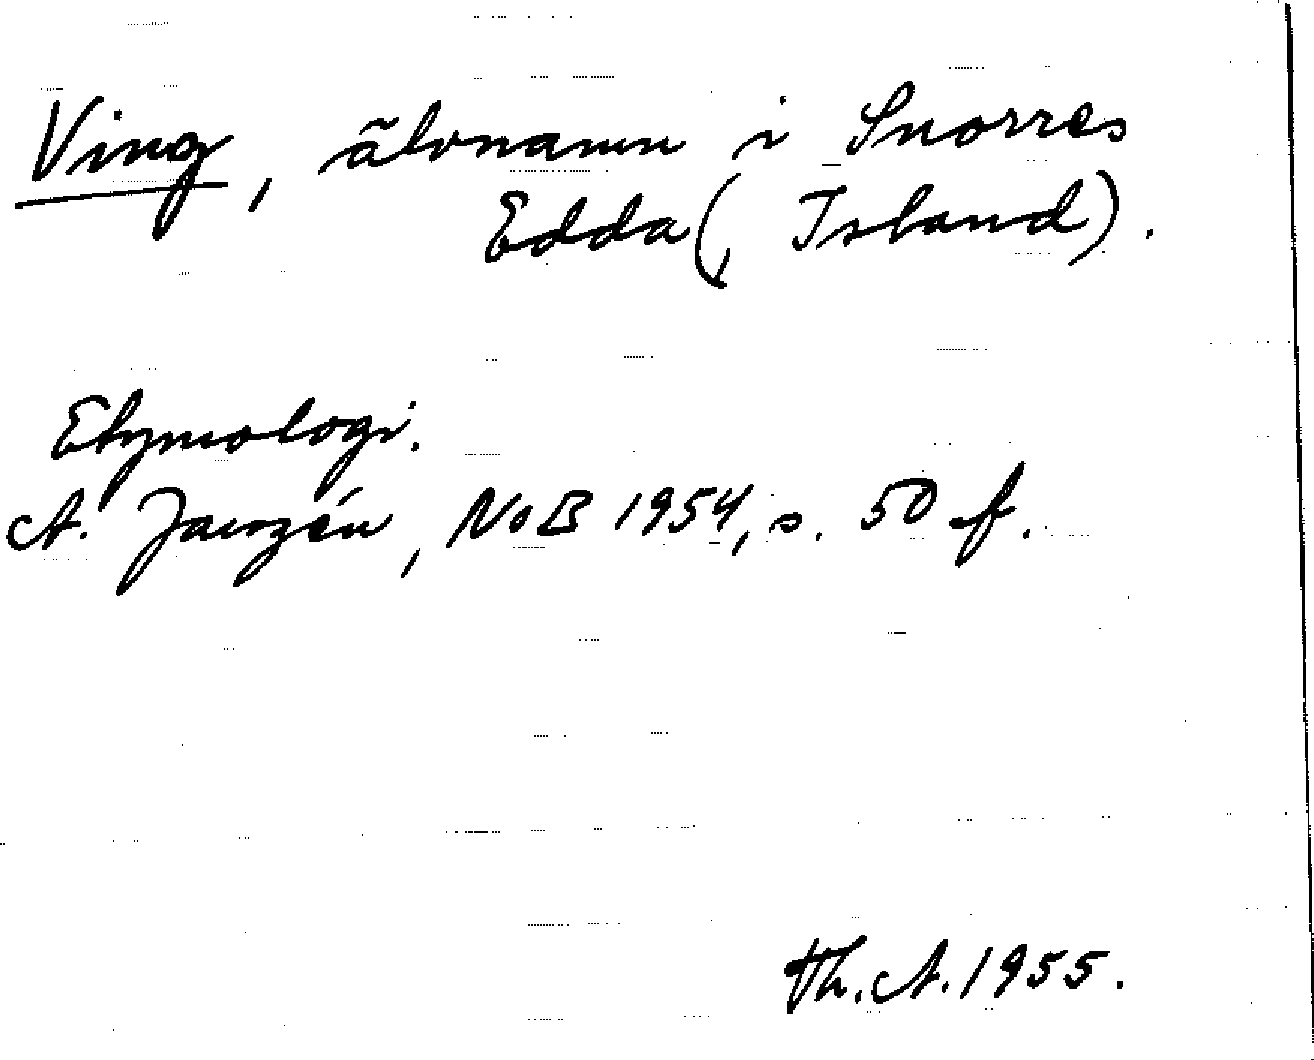 Ving, älvnamn i Snorres
Edda (, Island).
Etymologi.
A. Janzén, NoB 1954, s. 50 f.
Th. A. 1955.